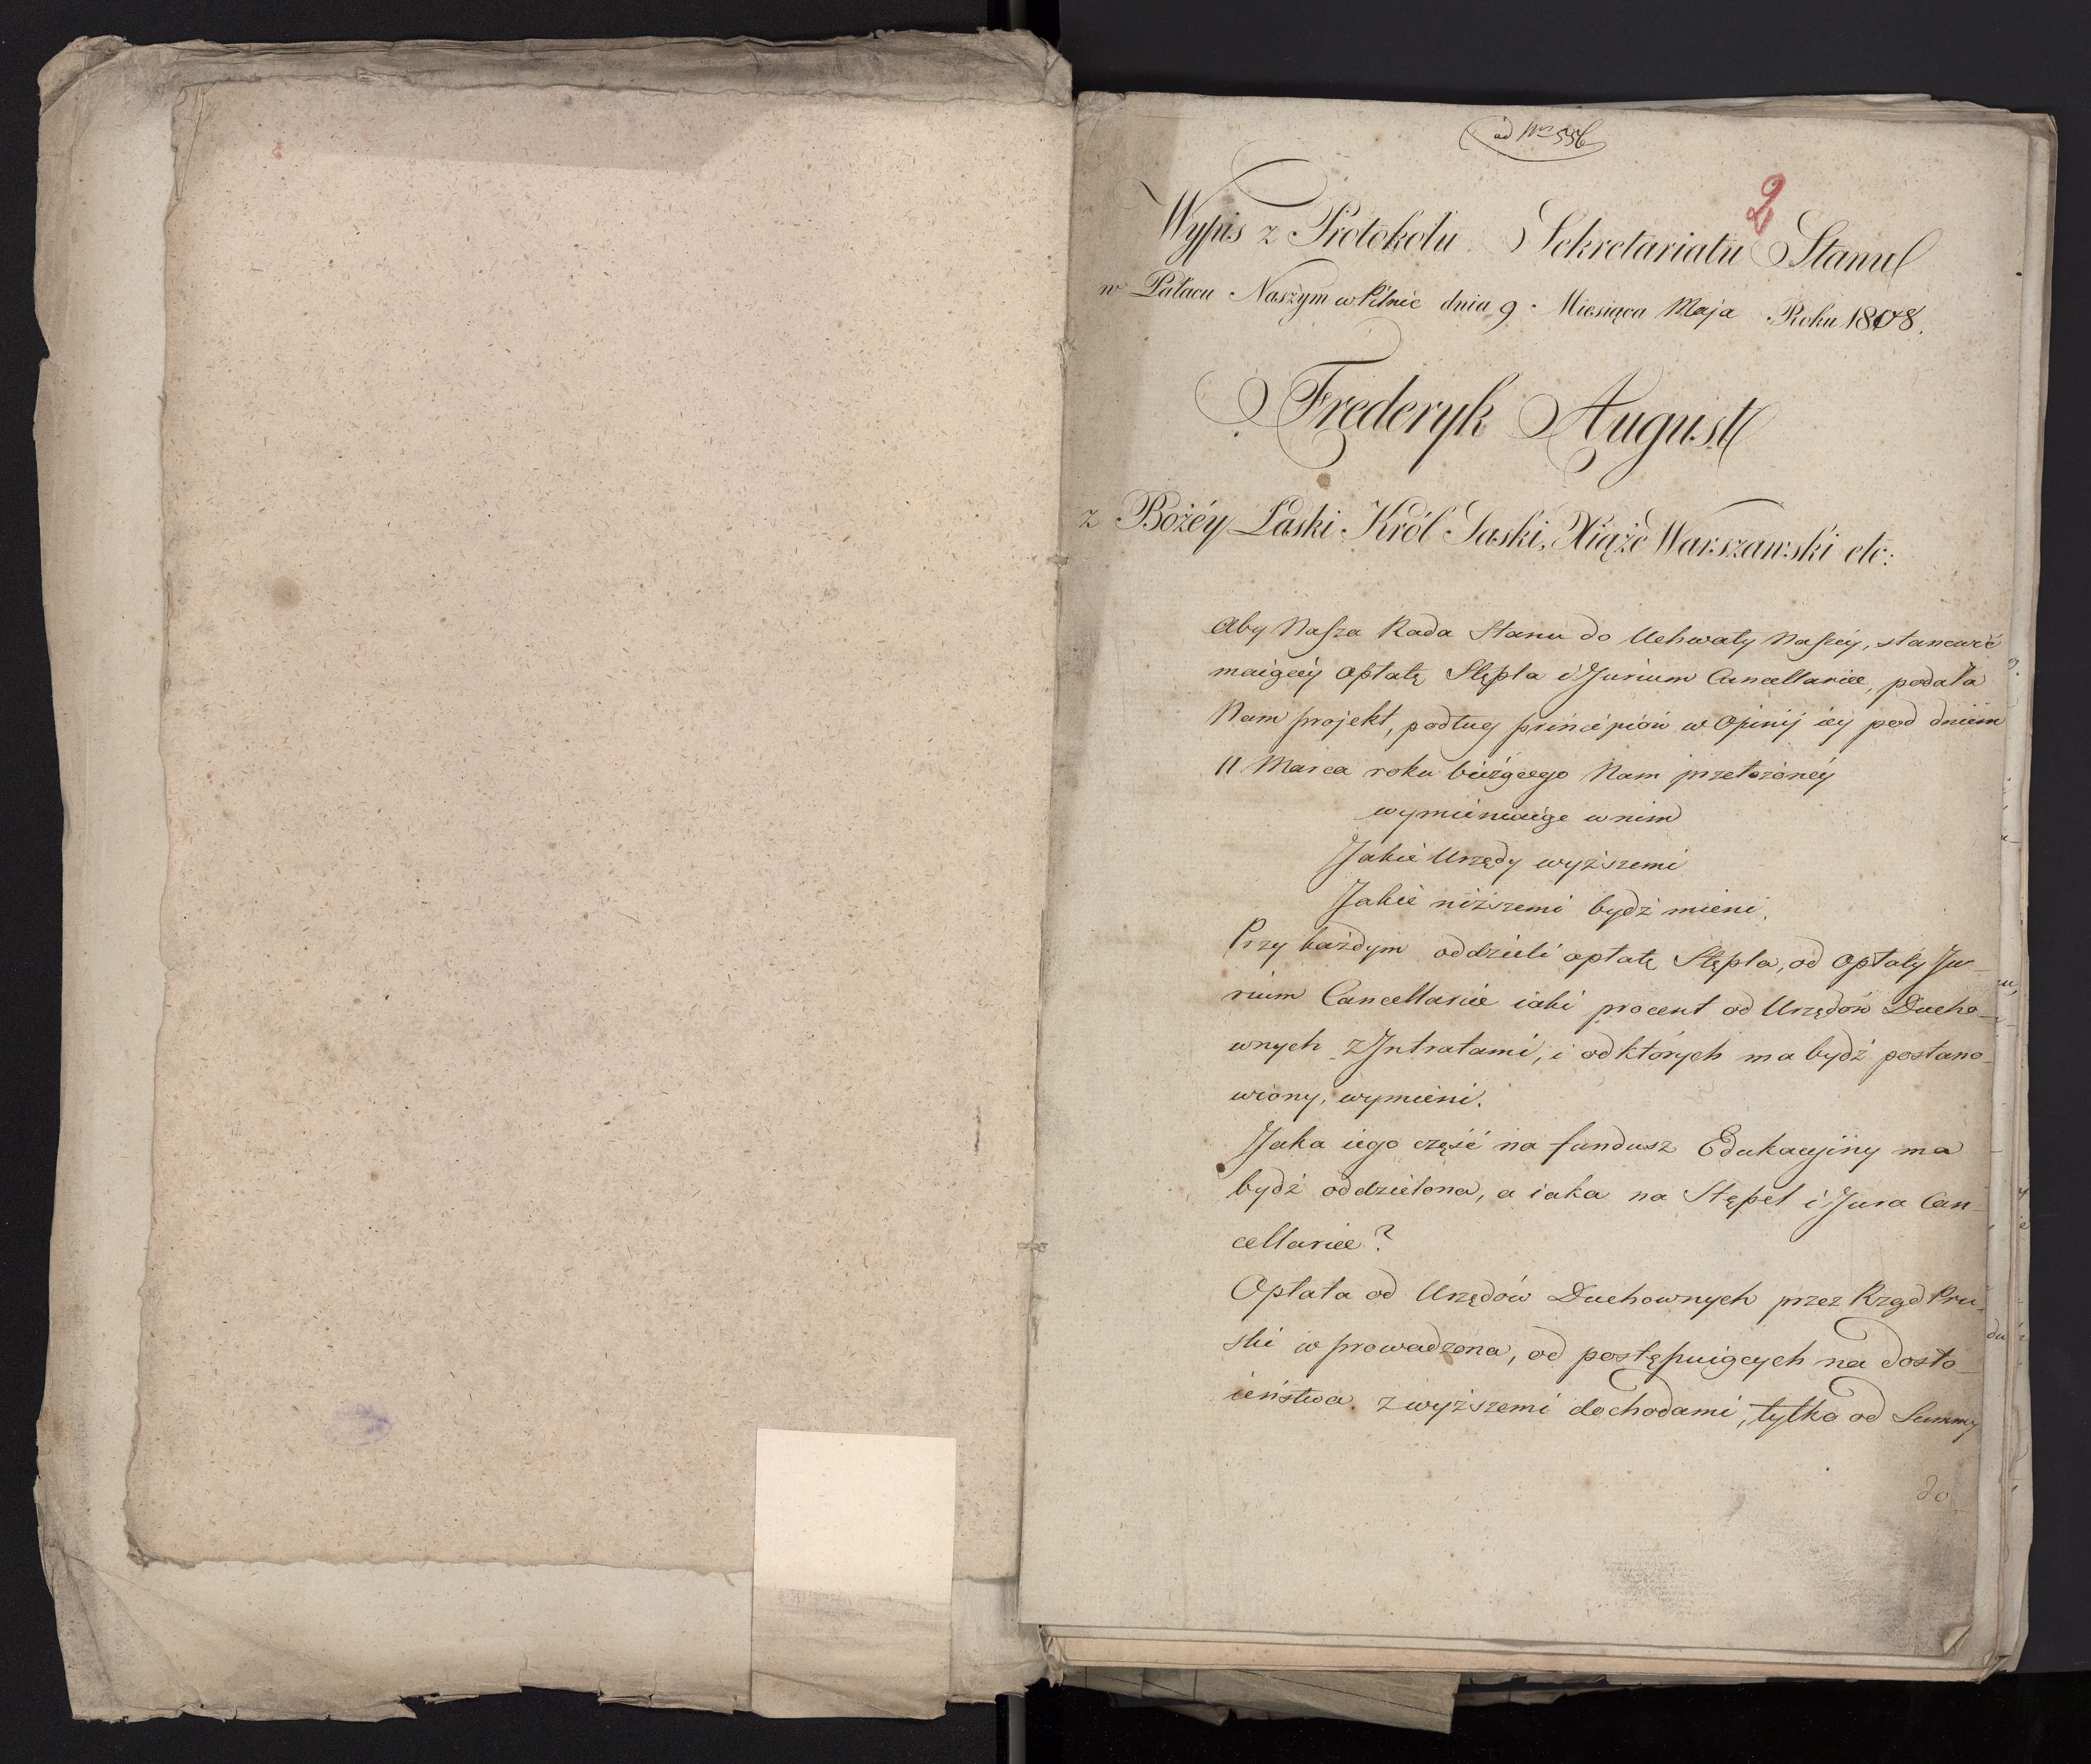 ad Nro 556
2
Wypis z Protokołu Sekretariatu Stanu
w Pałacu Naszym w Pilnic dnia 9 Miesiąca Maja Roku 1808.
Frederyk August
z Bożéy Łaski Król Saski, Xiąże Warszawski etc:
Aby Nasza Rada Stanu do Uchwały Naszéy, stanowić
maiącéy Opłatę Stępla i Jurium Cancellariae, podała
Nam projekt, podług principiów w Opinij iéy pod dniem
11 Marca roku bieżącego Nam przełożonéy
wymieniaiąc w nim
Jakie Urzędy wyższemi
Jakie niższemi bydź mieni.
Przy każdym oddzieli opłatę Stępla, od Opłaty Ju-
rium Cancellariae iaki procent od UrzędówDucho-
wnych z Intratami, i od których ma bydź postano-
wiony, wymieni.
Jaka iego część na fundusz Edukacyiny ma
bydź oddzielona, a iaka na Stępel i Jura Can-
cellariae?
Opłata od Urzędów Duchownych przez Rząd Pru-
ski wprowadzona, od postępuiących na dosto-
ieństwa z wyższemi dochodami, tylko od Summy
do